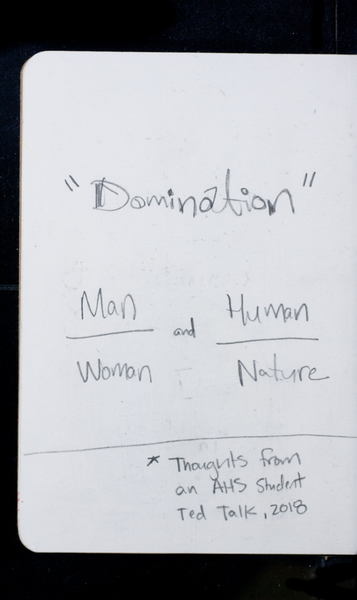 "Domination"
Man and Human
Woman Nature
* Thoughts from
an AHS Student
Ted Talk, 2018